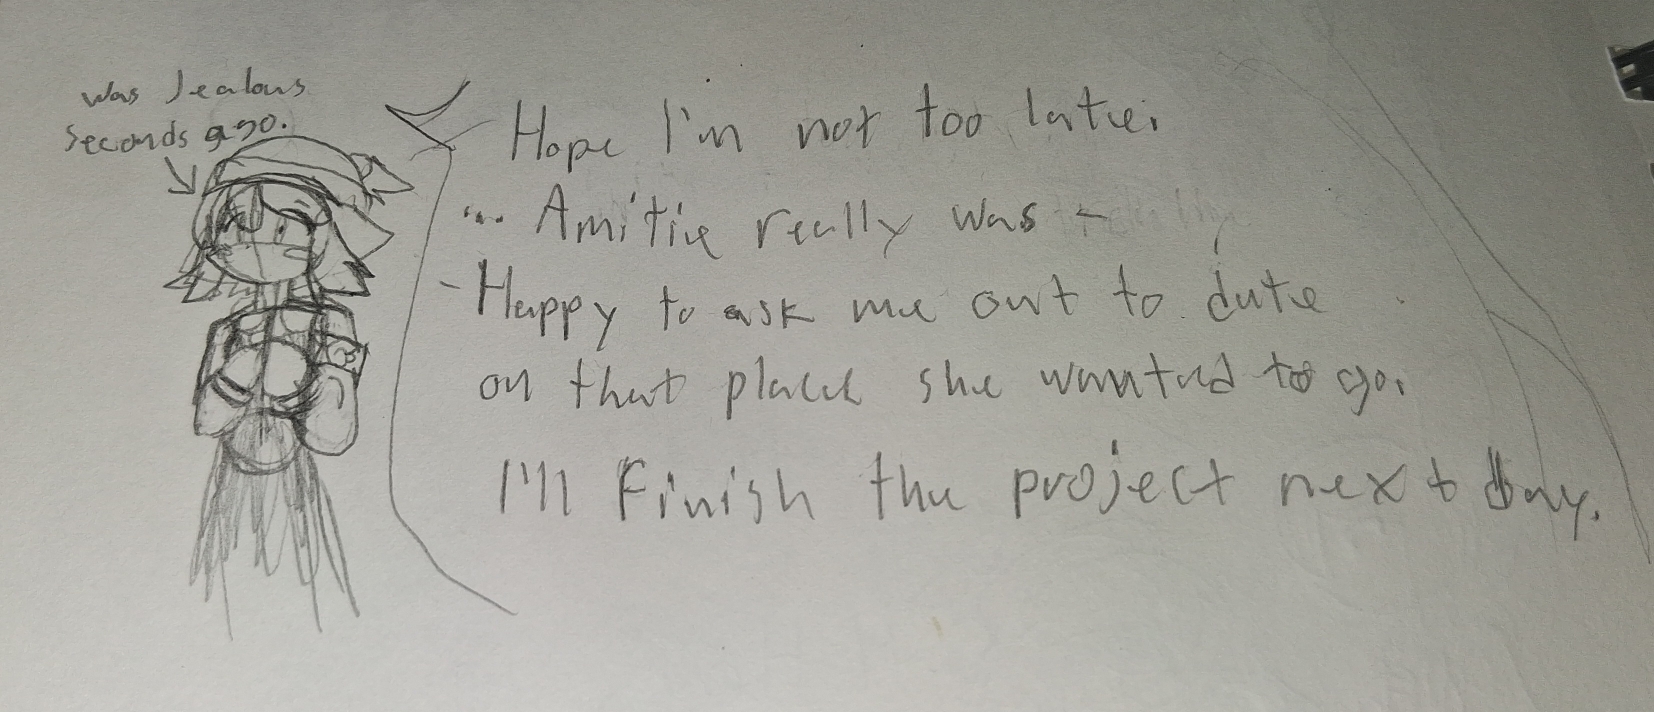 was Jealous
seconds ago.
Hope I'm not too late.
... Amitie really was -
- Happy to ask me out to date
on that place she wanted to go.
I'll Finish the project next day.